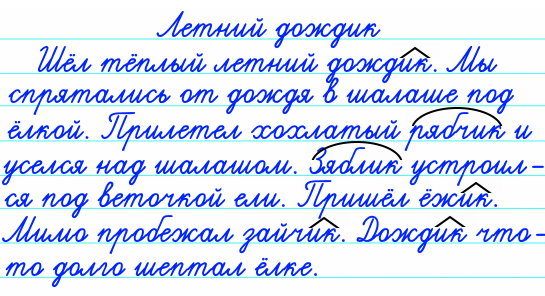 Летний дождик
Шёл тёплый летний дождик. Мы
спрятались от дождя в шалаше под
ёлкой. Прилетел хохлатый рябчик и
уселся над шалашом. Зяблик устроил-
ся под веточкой ели. Пришёл ёжик.
Мимо пробежал зайчик. Дождик что-
то долго шептал ёлке.